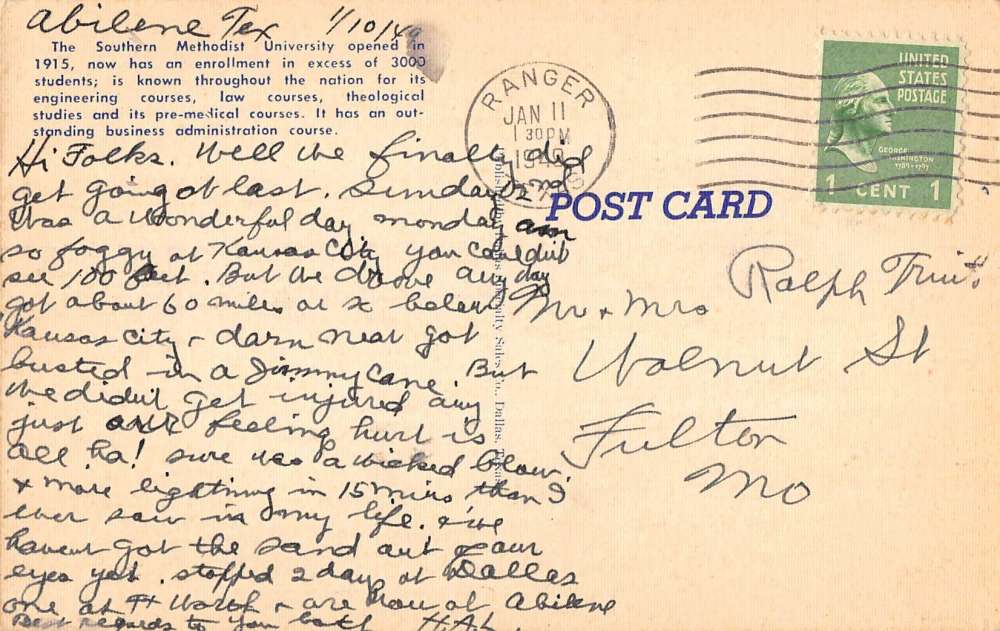 Abilene Tex 1/10/49
The Southern Methodist University opened in
1915, now has an enrollment in excess of 3000
students; is known throughout the nation for its
engineering courses, law courses, theological
studies and its pre-medical courses. It has an out-
standing business administration course.
Hi Folks. Well we finally did
get going at last. Sunday 2nd
was a wonderful day monday am
so foggy at Kansas City you couldnt
see 100 feet. But we drove all day
got about 60 miles below
Kansas City & darn near got
busted in a Jimmycane. But
we didnt get injured any
just our feeling hurt is
all ha! sure was a wicked blow.
& more lightning in 15 mins than I
ever saw in my life. & we
havent got the sand out of our
eyes yet. stopped 2 days at Dallas
one at Ft Worth & are now at Abilene
Best regards to you both
RANGER
JAN 11
1 30 PM
UNITED
STATES
POSTAGE
GEORGE
WASHINGTON
1789-1797
1 CENT 1
POST CARD
Mr & Mrs Ralph
Walnut St
Fulton
Mo
Sales Co., Dallas, Texas